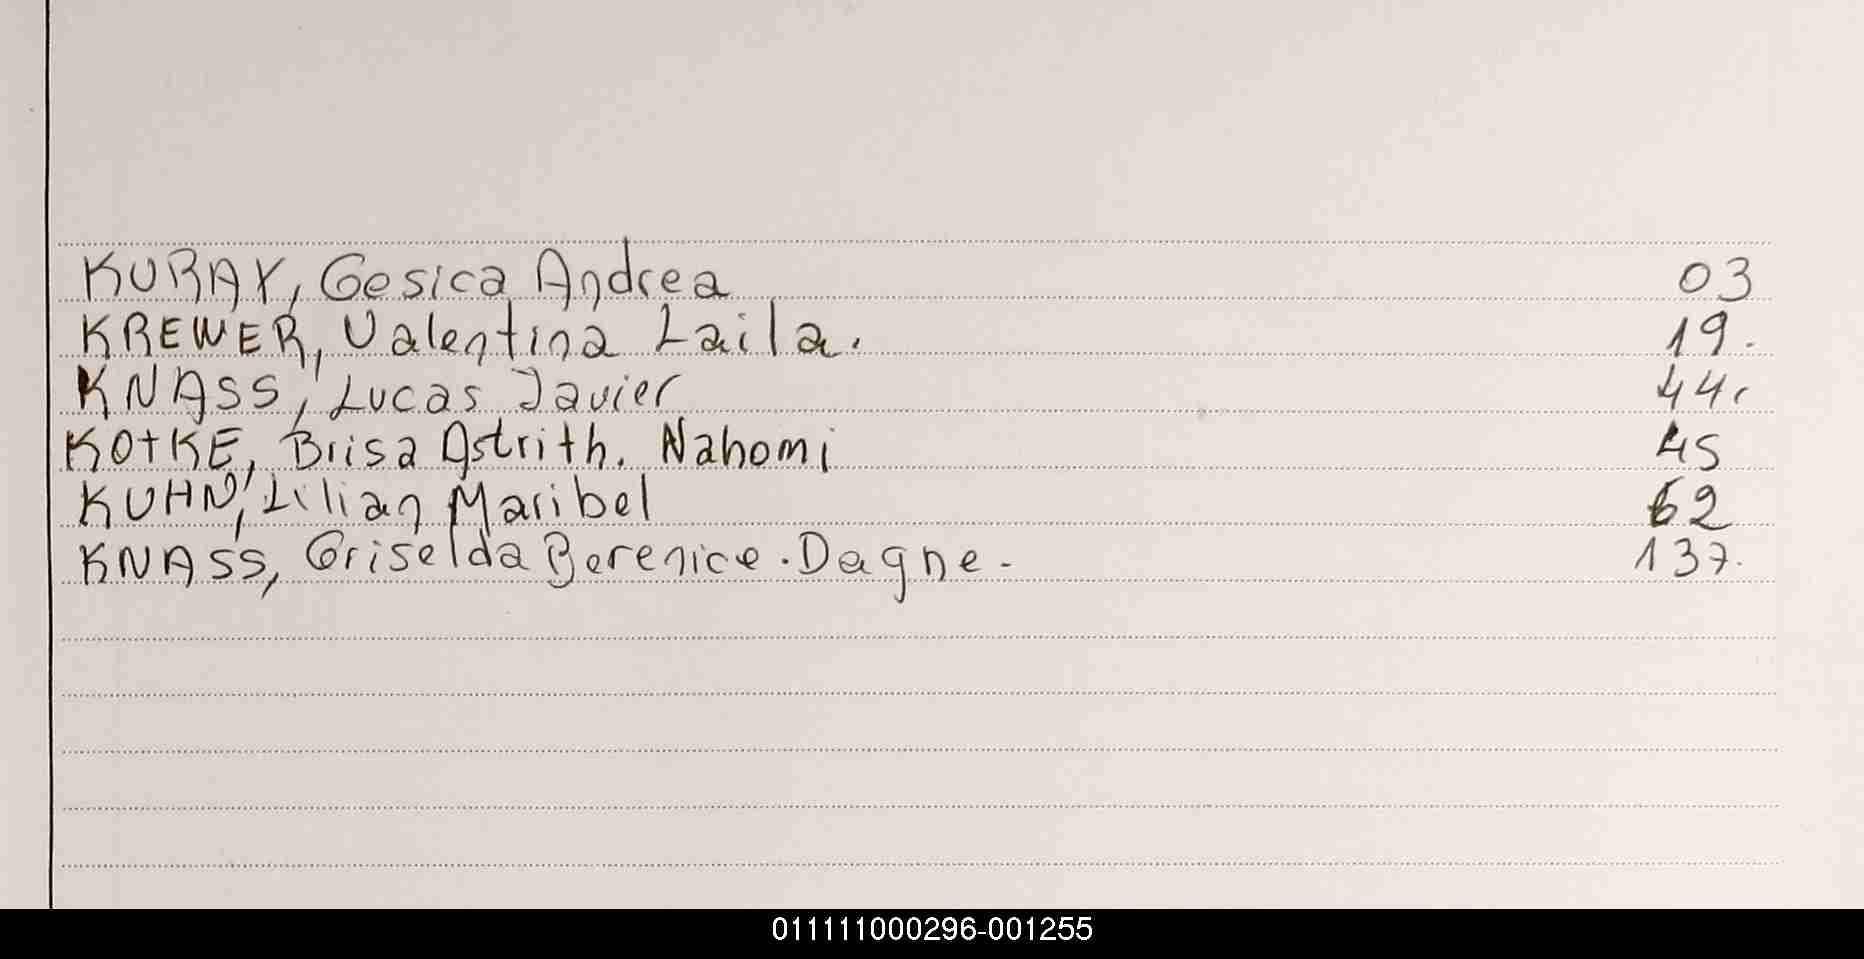 KURAY, Gesica Andrea 03
KREWER, Valentina Laila. 19.
KNASS, Lucas Javier 44.
KOTKE, Brisa Astrith. Nahomi 45
KUHN, Lilian Maribel 62
KNASS, Griselda Berenice. Dagne. 137.
011111000296-001255